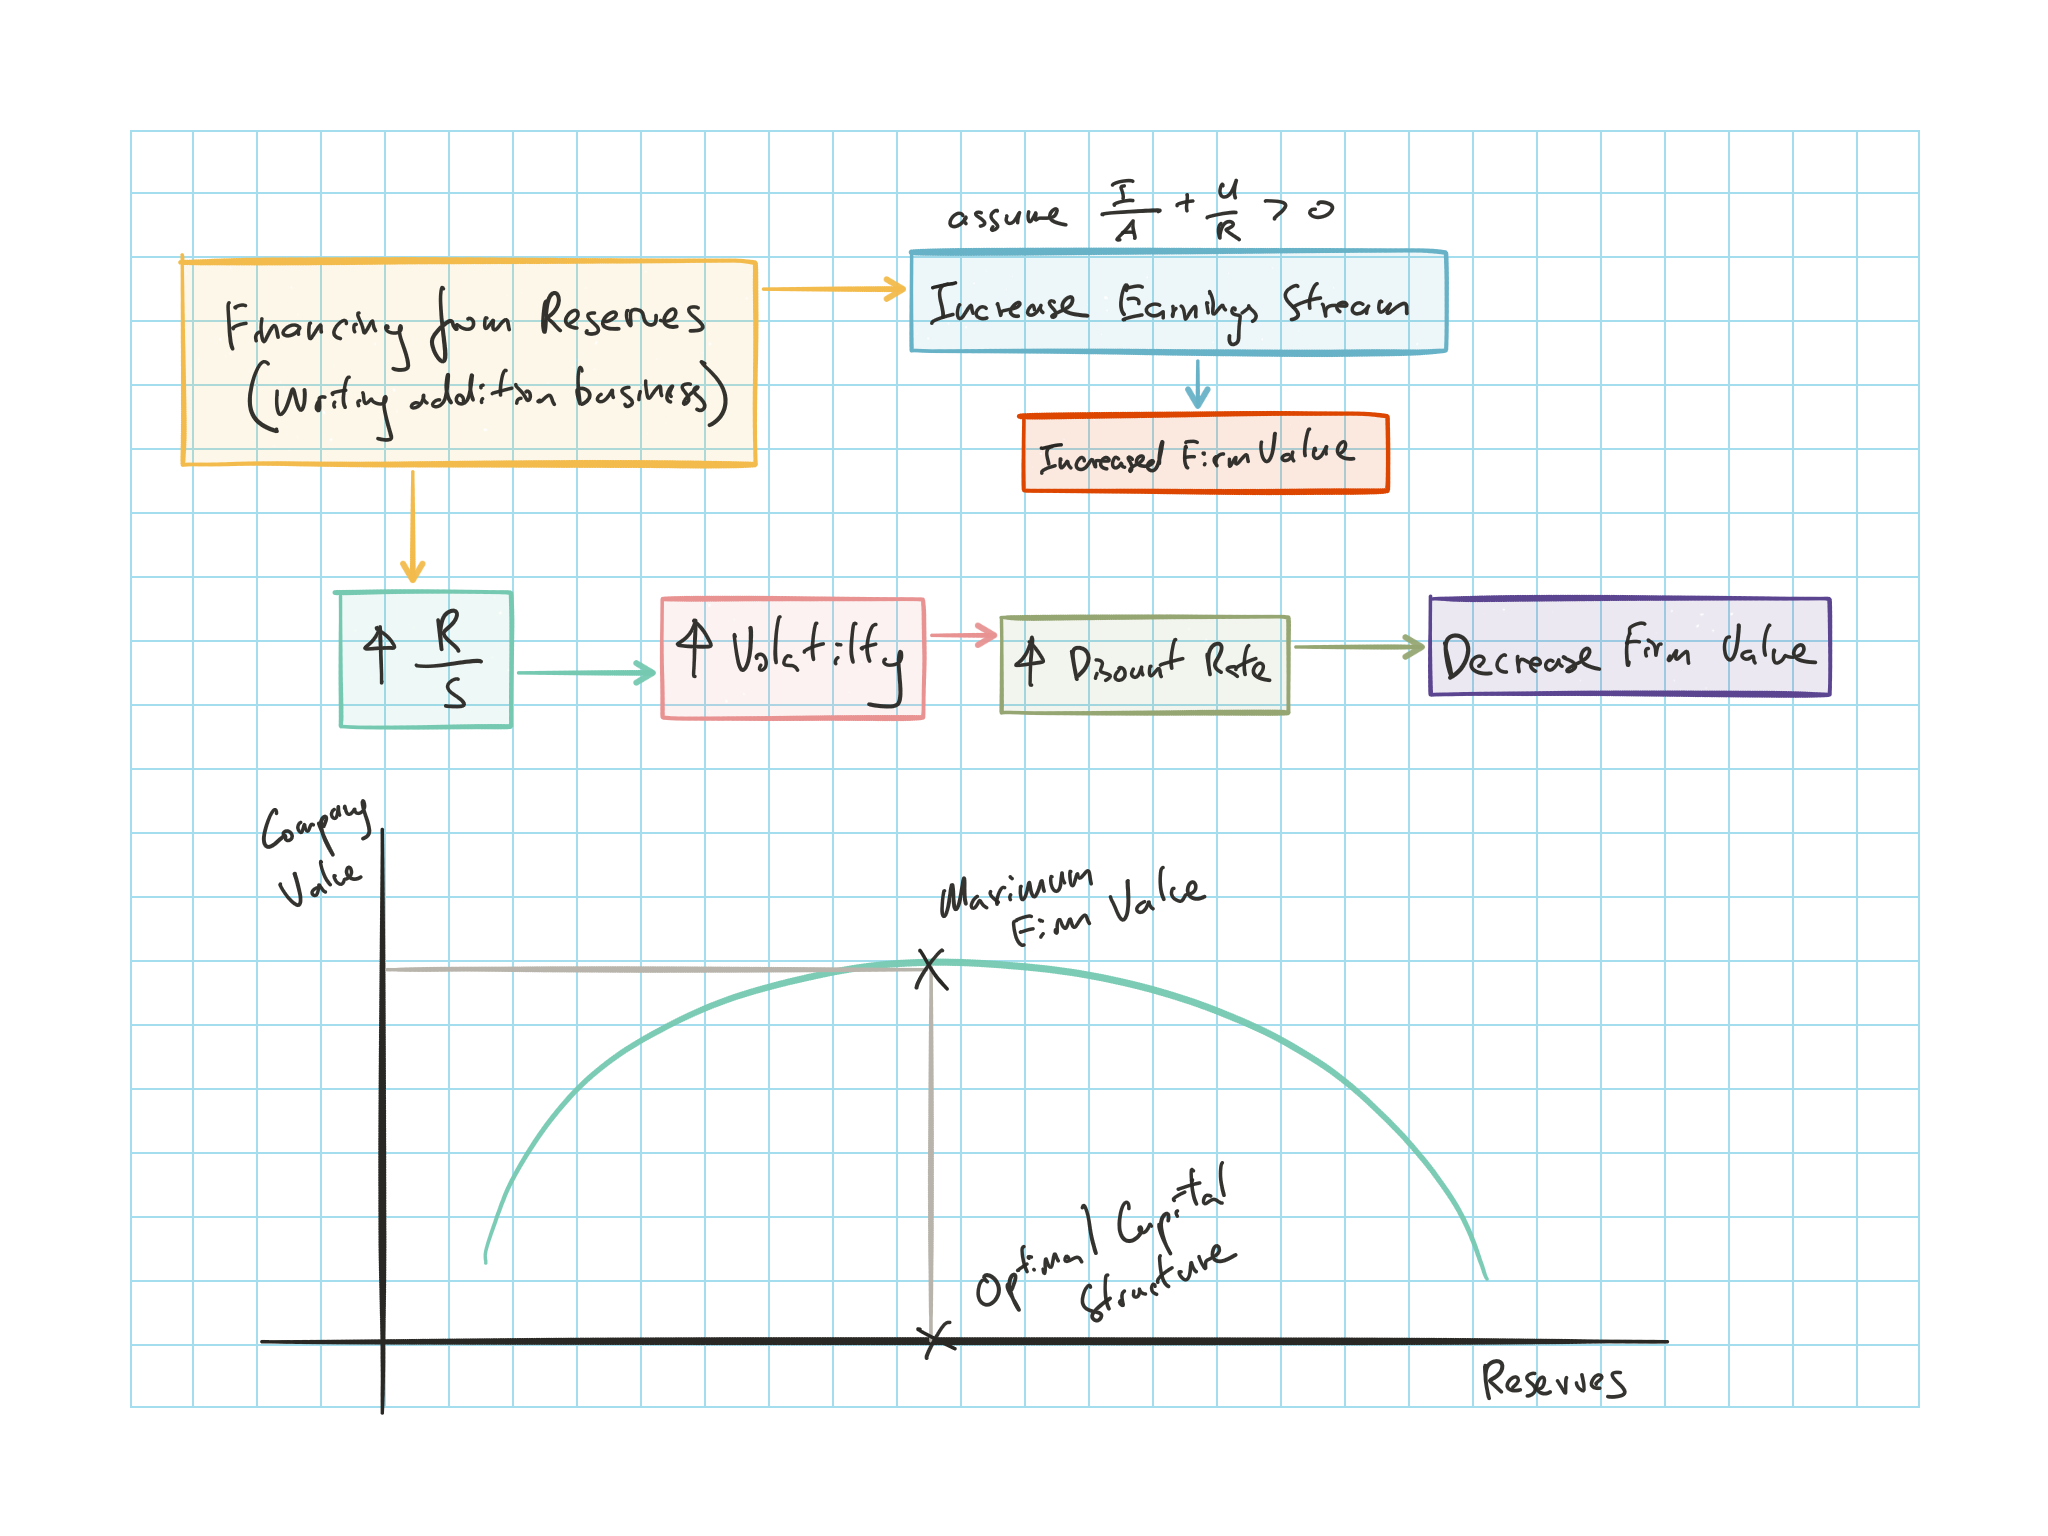 assume I/A + U/R > 0
Financing from Reserves
(Writing addition business)
Increase Earnings Stream
Increased Firm Value
↑ R/S
↑ Volatilty
↑ Disount Rate
Decrease Firm Value
Company
Value
Maximum
Firm Value
Optimal Capital
Structure
Reserves